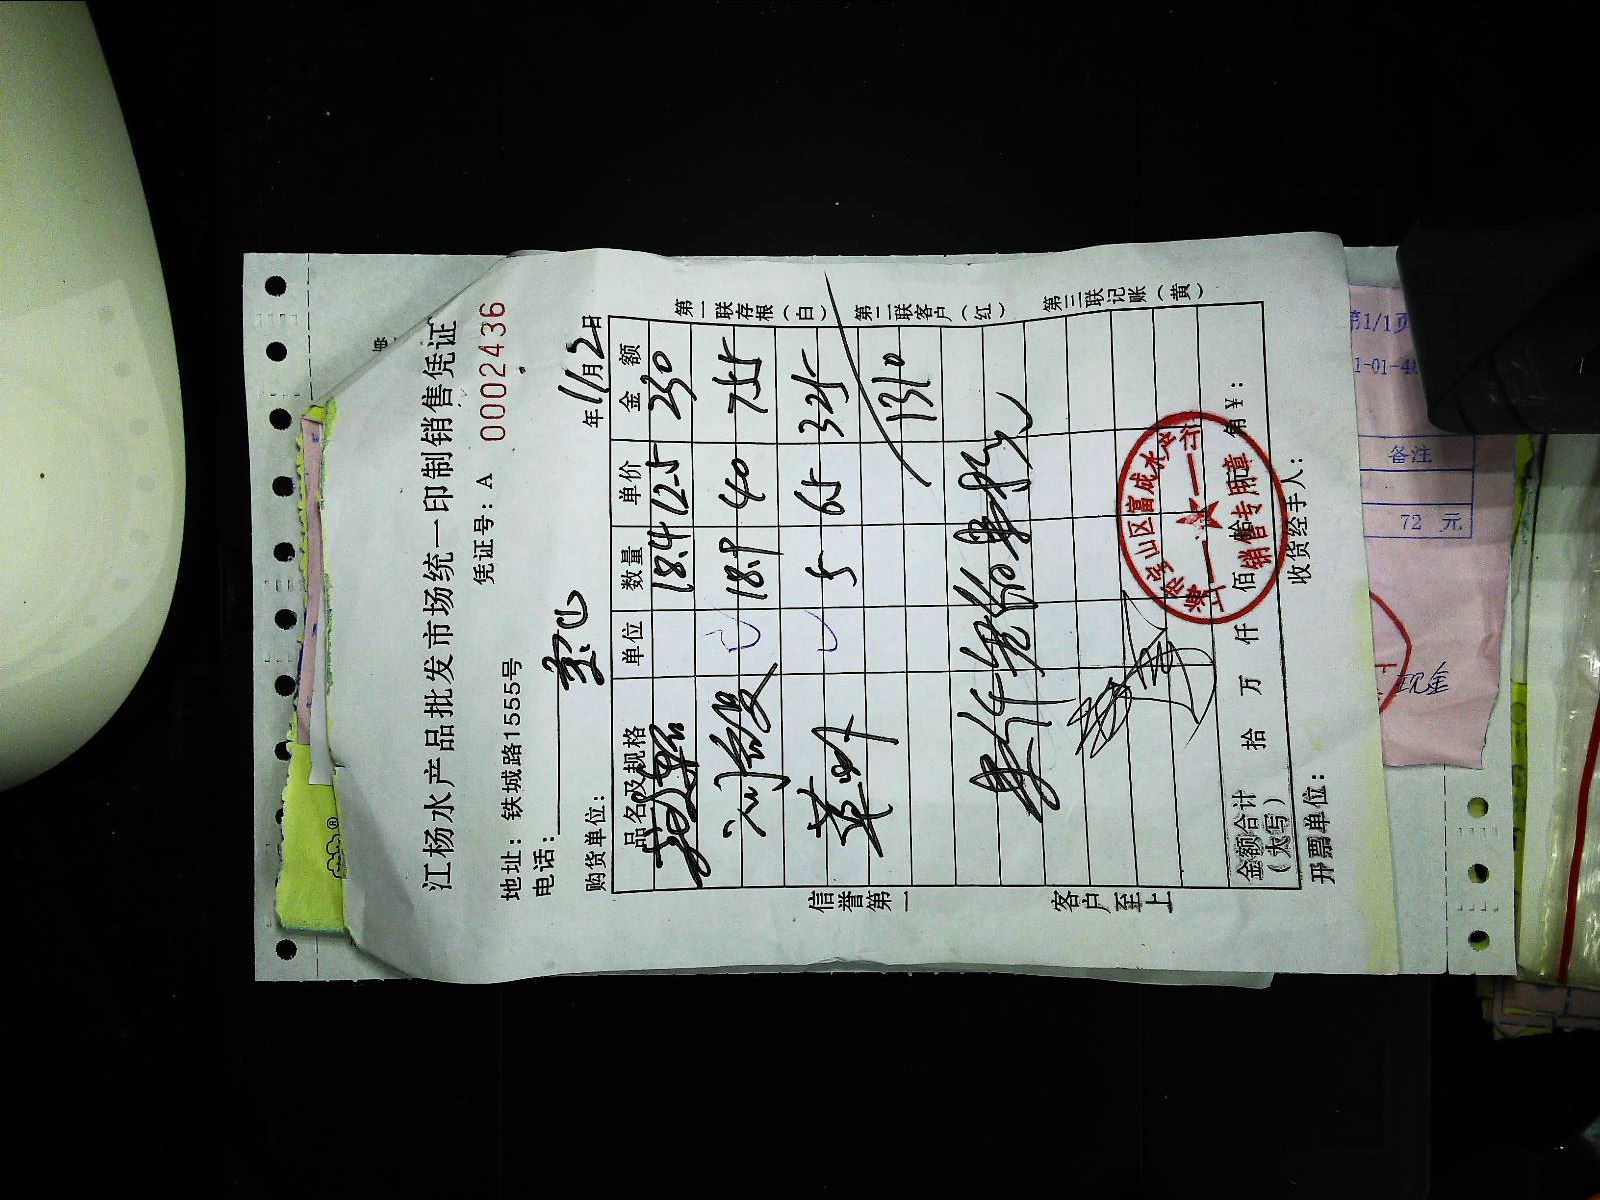 江杨水产品批发市场统一印制销售凭证
地址：铁城路1555号
凭证号：A 0002436
电话：
购货单位：
年11月2日
品名及规格 单位 数量 单价 金额
18.4 12.5 230
18.9 40 755
5 65 325
1310
第一联存根（白）
第二联客户（红）
第三联记账（黄）
信誉第一
客户至上
金额合计
（大写）
拾 万 仟 佰 ¥：
开票单位：
收货经手人：
上海市宝山区富成水产行
销售专用章
第1/1页
备注
72 元
现金